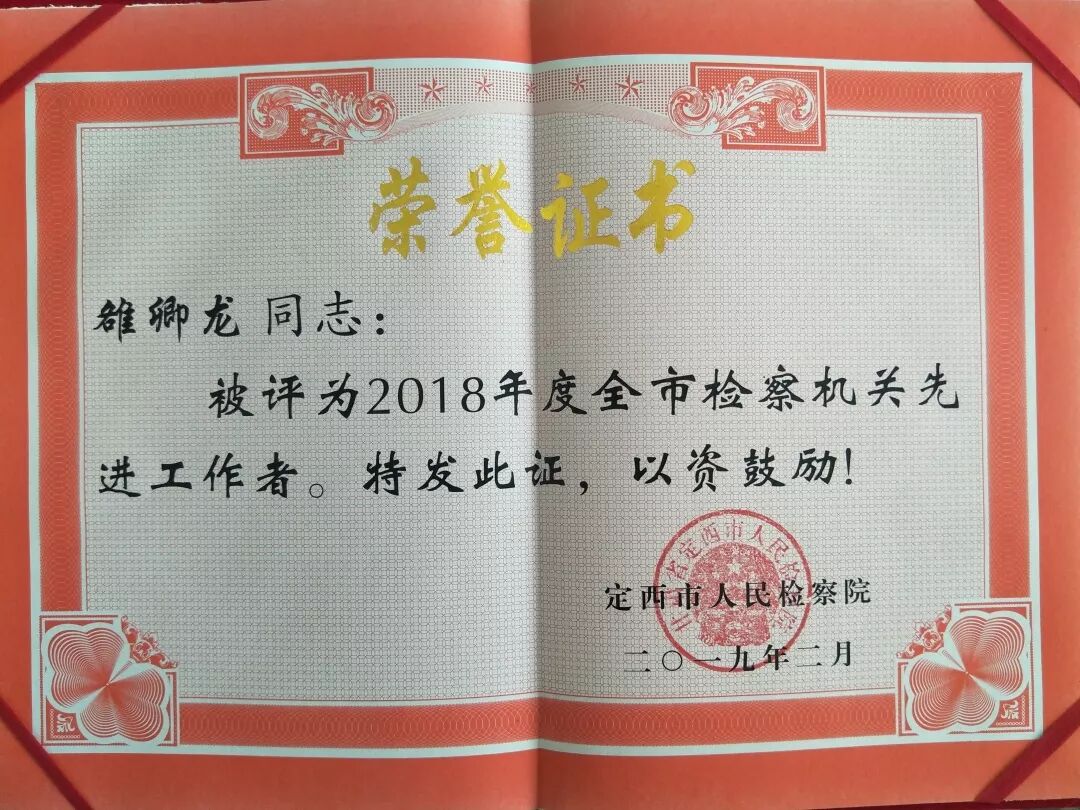 荣誉证书
雒卿龙 同志：
被评为2018年度全市检察机关先
进工作者。特发此证，以资鼓励！
定西市人民检察院
二〇一九年二月